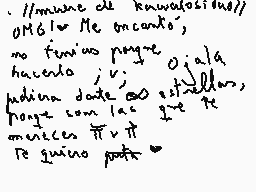 . //muere de kawaiosidad//
OMG! ♥ Me encantó,
no tenías porque
hacerlo ;v; Ojala
pudiera darte ∞ estrellas,
porque son las que te
mereces π v π
Te quiero ♥